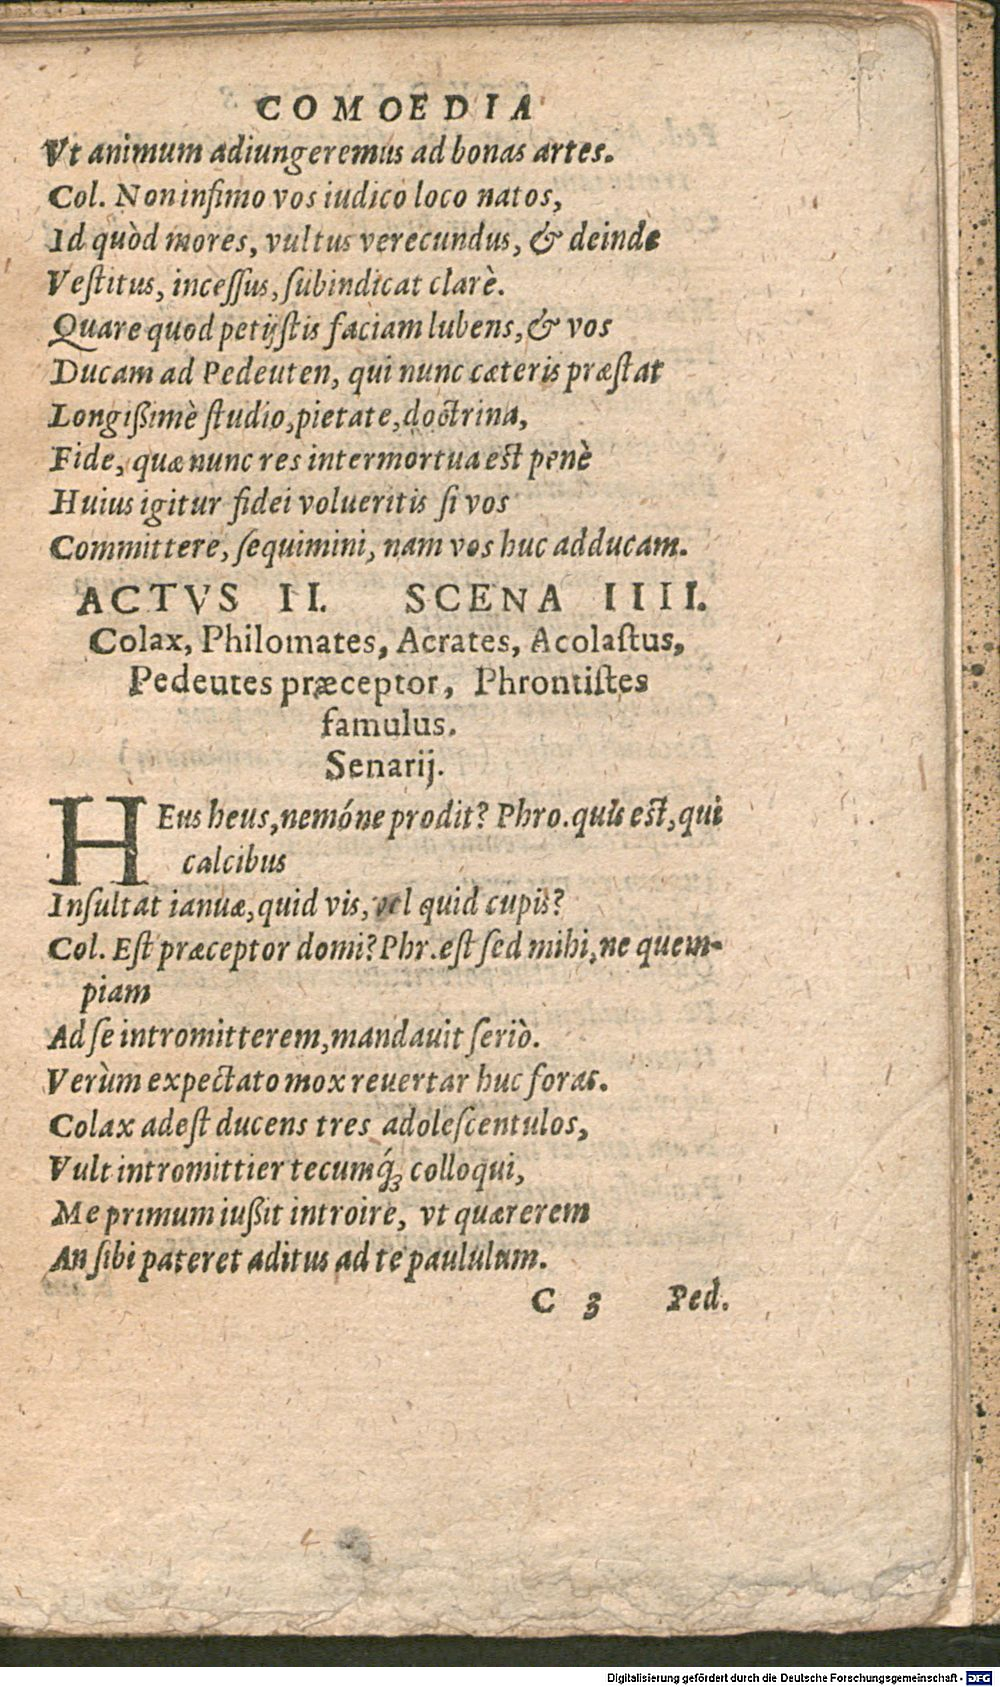 COMOEDIA
Vt animum adiungeremus ad bonas artes.
Col. Non infimo vos iudico loco natos,
Id quòd mores, vultus verecundus, & deinde
Veſtitus, inceſſus, ſubindicat clarè.
Quare quod petijſtis faciam lubens, & vos
Ducam ad Pedeuten, qui nunc cæteris præſtat
Longißimè ſtudio, pietate, doctrina,
Fide, quæ nunc res intermortua eſt penè
Huius igitur fidei volueritis ſi vos
Committere, ſequimini, nam vos huc adducam.
ACTVS II. SCENA IIII.
Colax, Philomates, Acrates, Acolaſtus,
Pedeutes præceptor, Phrontiſtes
famulus.
Senarij.
HEus heus, nemóne prodit? Phro. quis eſt, qui
calcibus
Inſultat ianuæ, quid vis, vel quid cupis?
Col. Eſt præceptor domi? Phr. eſt ſed mihi, ne quem-
piam
Ad ſe intromitterem, mandauit ſeriò.
Verùm expectato mox reuertar huc foras.
Colax adeſt ducens tres adoleſcentulos,
Vult intromittier tecumq́ꝫ colloqui,
Me primum iußit introire, vt quærerem
An ſibi pateret aditus ad te paululum.
C 3 Ped.
Digitalisierung gefördert durch die Deutsche Forschungsgemeinschaft - DFG